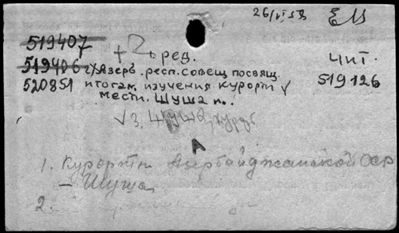 26/VI 53 ЕМ
519407
+2 ред.
519406 2) Азерб. респ. совещ посвящ. чит.
520851 итогам изучения курортн 519126
местн. Шуша и.
√3.
А
1. Курорты Азербайджанской ССР
– Шуша
2.